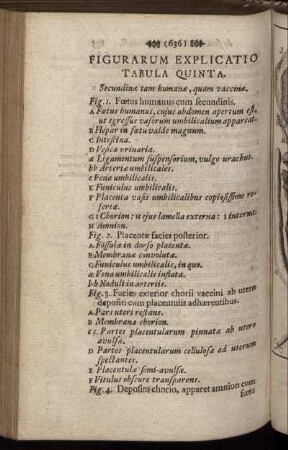 (636)
FIGURARUM EXPLICATIO
TABULA QUINTA.
Secundinæ tam humanæ, quam vaccinæ.
Fig. 1. Fœtus humanus cum secundinis.
A Fœtus humanus, cujus abdomen apertum est,
ut egressus vasorum umbilicalium appareat.
B Hepar in fœtu valde magnum.
C Intestina.
D Vesica urinaria.
a Ligamentum suspensorium, vulgo urachus.
bb Arteriæ umbilicales.
c Vena umbilicalis.
E Funiculus umbilicalis.
F Placenta vasis umbilicalibus copiosissime re-
ferta.
G 1 Chorion: u ejus lamella externa: 1 interna.
H Amnion.
Fig. 2. Placentæ facies posterior.
A Fossula in dorso placentæ.
B Membranæ convolutæ.
C Funiculus umbilicalis, in quo.
a Vena umbilicalis inflata.
bb Noduli in arteriis.
Fig. 3. Facies exterior chorii vaccini ab utero
depositi cum placentulis adhærentibus.
A Pars uteri restans.
B Membrana chorion.
cc Partes placentularum pinnatæ ab utero
avulsæ.
D Partes placentularum cellulosæ ad uterum
spectantes.
E Placentulæ semi-avulsæ.
F Vitulus obscure transparens.
Fig. 4. Deposito chorio, apparet amnion cum
fœtu